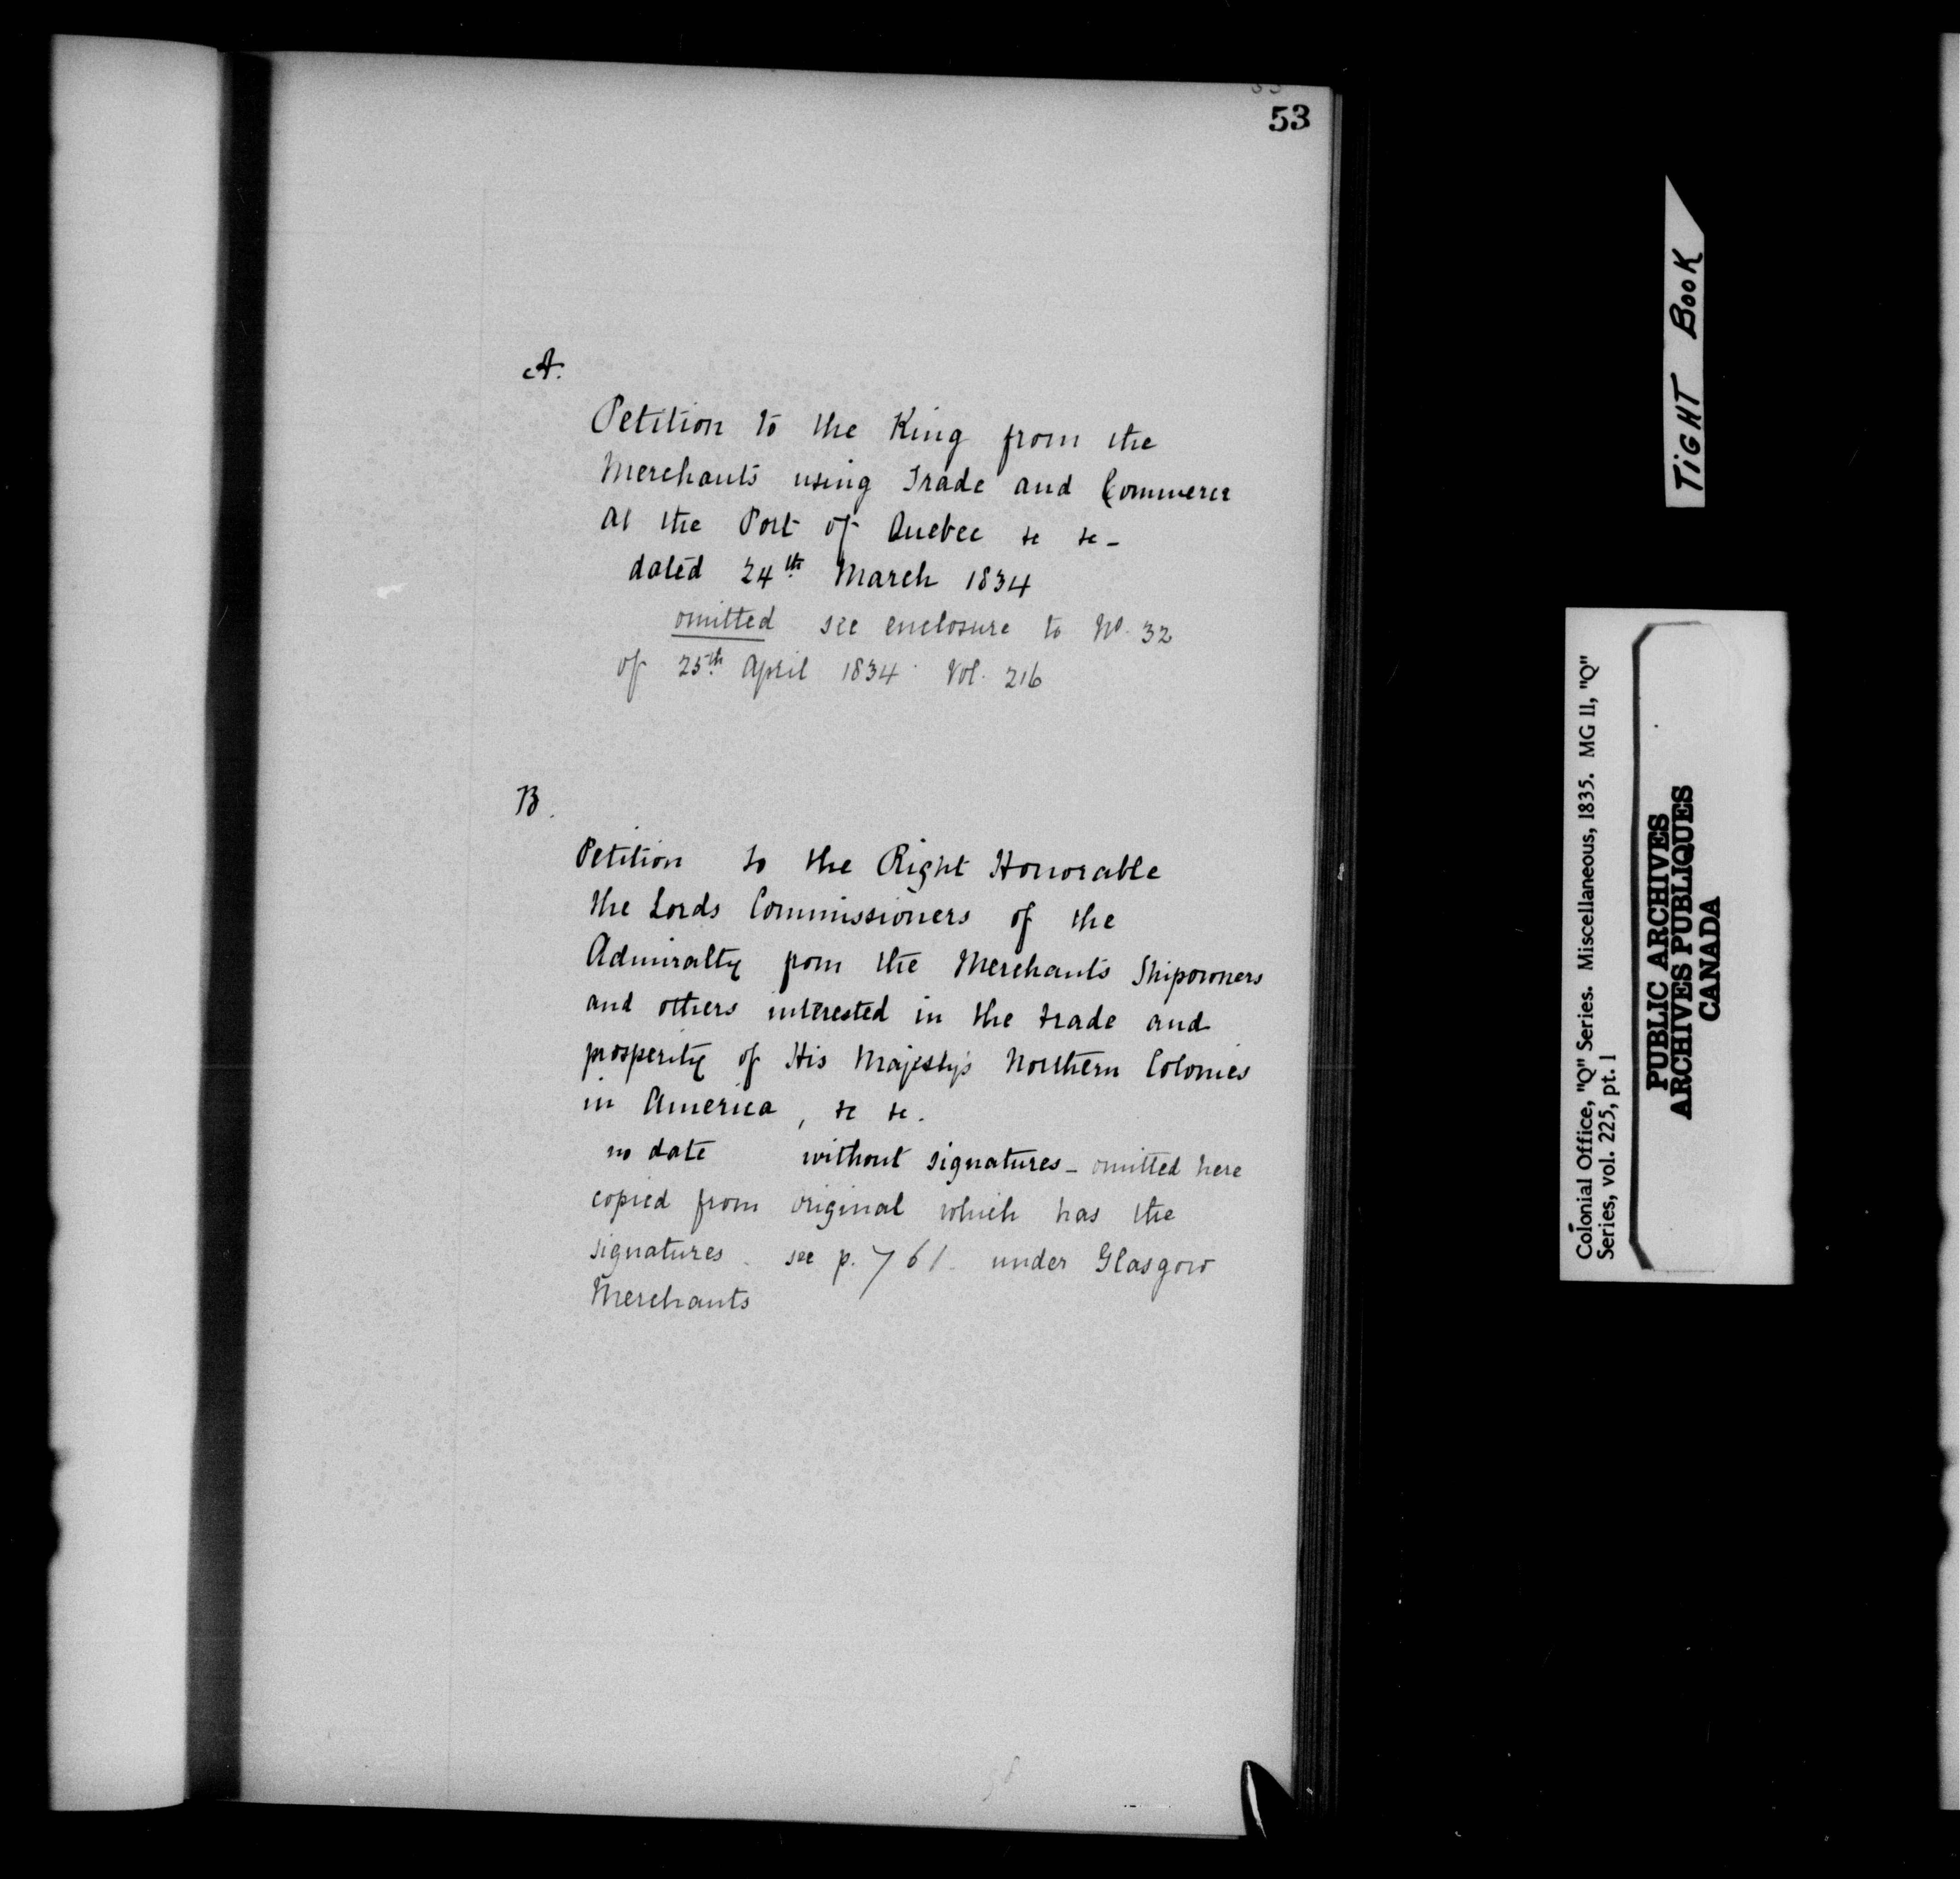 53
A.
Petition to the King from the
Merchants using Trade and Commerce
at the Port of Quebec &c &c -
dated 24th March 1834
omitted see enclosure to No. 32
of 25th April 1834. Vol. 216
B.
Petition to the Right Honorable
the Lords Commissioners of the
Admiralty from the Merchants Shipowners
and others interested in the trade and
prosperity of His Majesty's Northern Colonies
in America, &c &c.
no date without signatures - omitted here
copied from original which has the
signatures. see p. 761. under Glasgow
Merchants
TIGHT BOOK
Colonial Office, "Q" Series. Miscellaneous, 1835. MG 11, "Q"
Series, vol. 225, pt. 1
PUBLIC ARCHIVES
ARCHIVES PUBLIQUES
CANADA